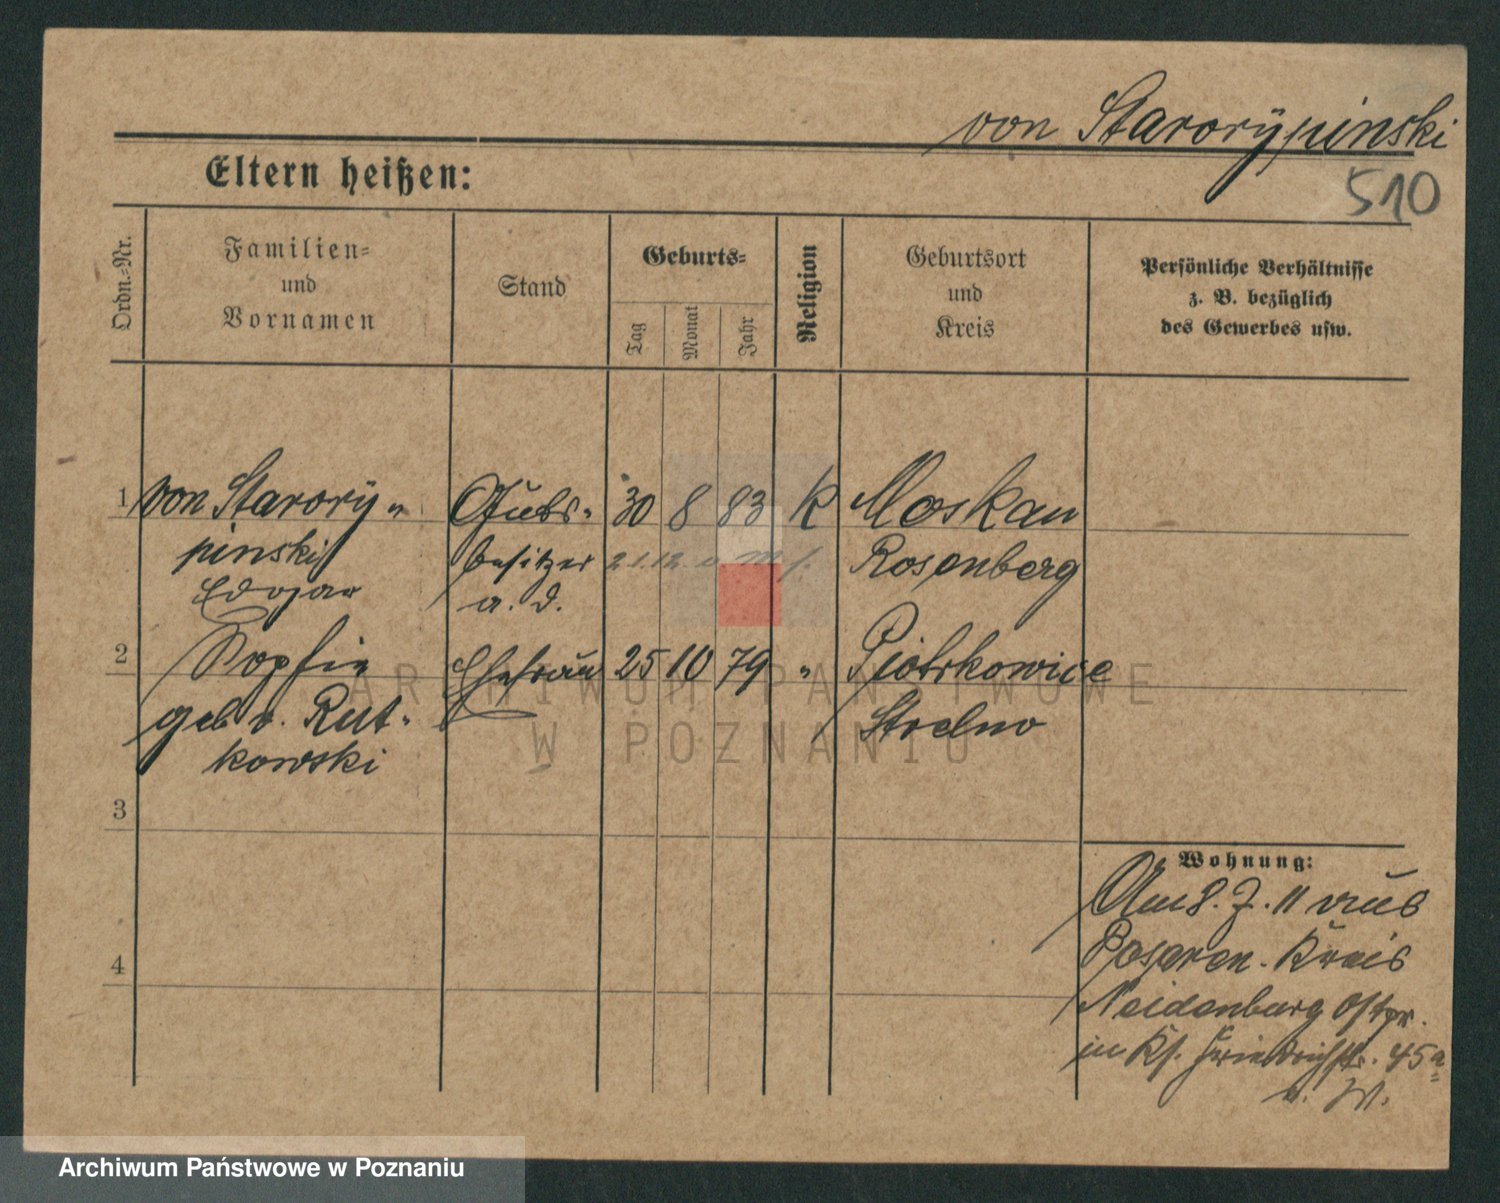 von Starorypinski
510
Eltern heißen:
Ordn.-Nr.
Familien-
und
Vornamen
Stand
Geburts-
Tag
Monat
Jahr
Religion
Geburtsort
und
Kreis
Persönliche Verhältnisse
z. B. bezüglich
des Gewerbes usw.
1 von Starory- Guts- 30 8 83 K Moskau
pinski besitzer 21.12. Rosenberg
Edgar a. D.
2 Sophie Ehefrau 25 10 79 " Piotrkowice
geb v. Rut- Strelno
kowski
3
4
Wohnung:
Am 8. 7. 11 aus
Kreis
Neidenburg Ostpr.
in Friedrichstr. 45a
ARCHIWUM PAŃSTWOWE
W POZNANIU
Archiwum Państwowe w Poznaniu